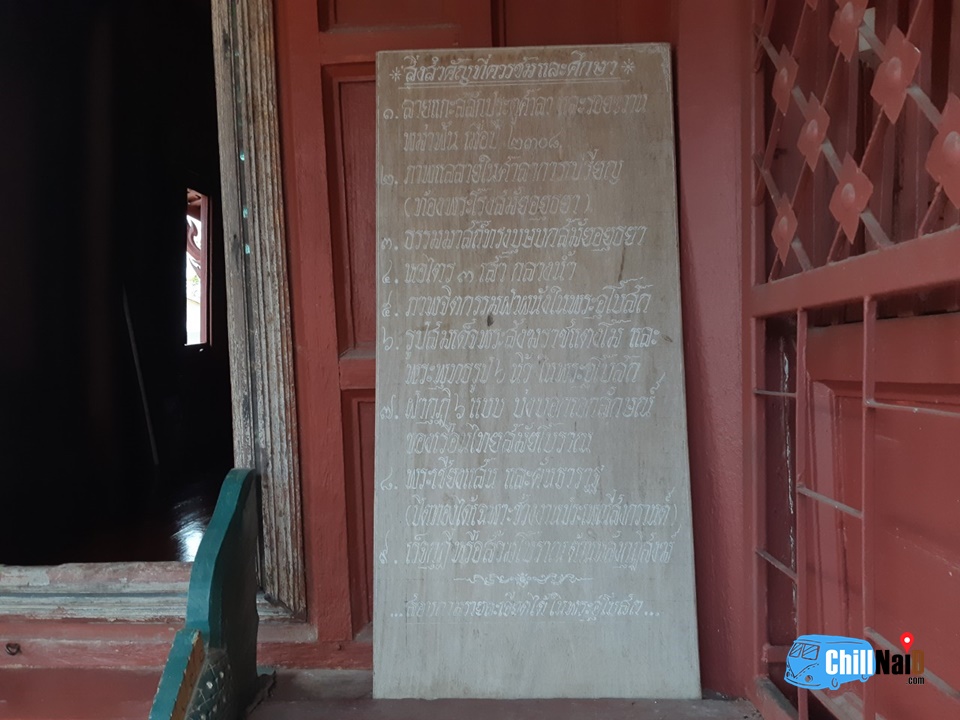 * สิ่งสำคัญที่ควรชมและศึกษา *
๑. ลายแกะสลักประตูศาลา และรอยขวาน
พม่าฟัน เมื่อปี ๒๓๐๘
๒. ภาพเขียนลายในศาลาการเปรียญ
(ท้องพระโรงสมัยอยุธยา)
๓. ธรรมมาสน์ทรงบุษบกสมัยอยุธยา
๔. หอไตร ๓ เสา กลางน้ำ
๕. ภาพจิตกรรมฝาผนังในพระอุโบสถ
๖. รูปสมเด็จพระสังฆราชแตงโม และ
พระพุทธรูป ๖ นิ้ว ในพระอุโบสถ
๗. ฝากุฏิ ๖ แบบ บ่งบอกเอกลักษณ์
ของเรือนไทยสมัยโบราณ
๘. พระเชียงแสน และคันธาราฐ
(ปิดทองได้เฉพาะช่วงงานประเพณีสงกรานต์)
๙.
ได้ในพระอุโบสถ...
ChillNaiD
.com